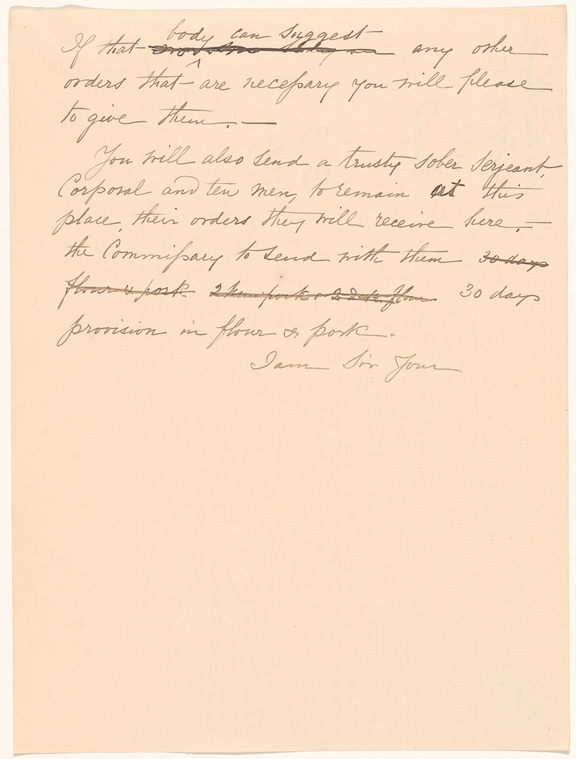 body can suggest
If that any other
orders that ^ are necessary you will please
to give them. —
You will also send a trusty sober Serjeant,
Corporal and ten men, to remain at this
place, their orders they will receive here, —
the Commissary to send with them 30 days
flour & pork 30 days
provision in flour & pork.
I am Sir Your